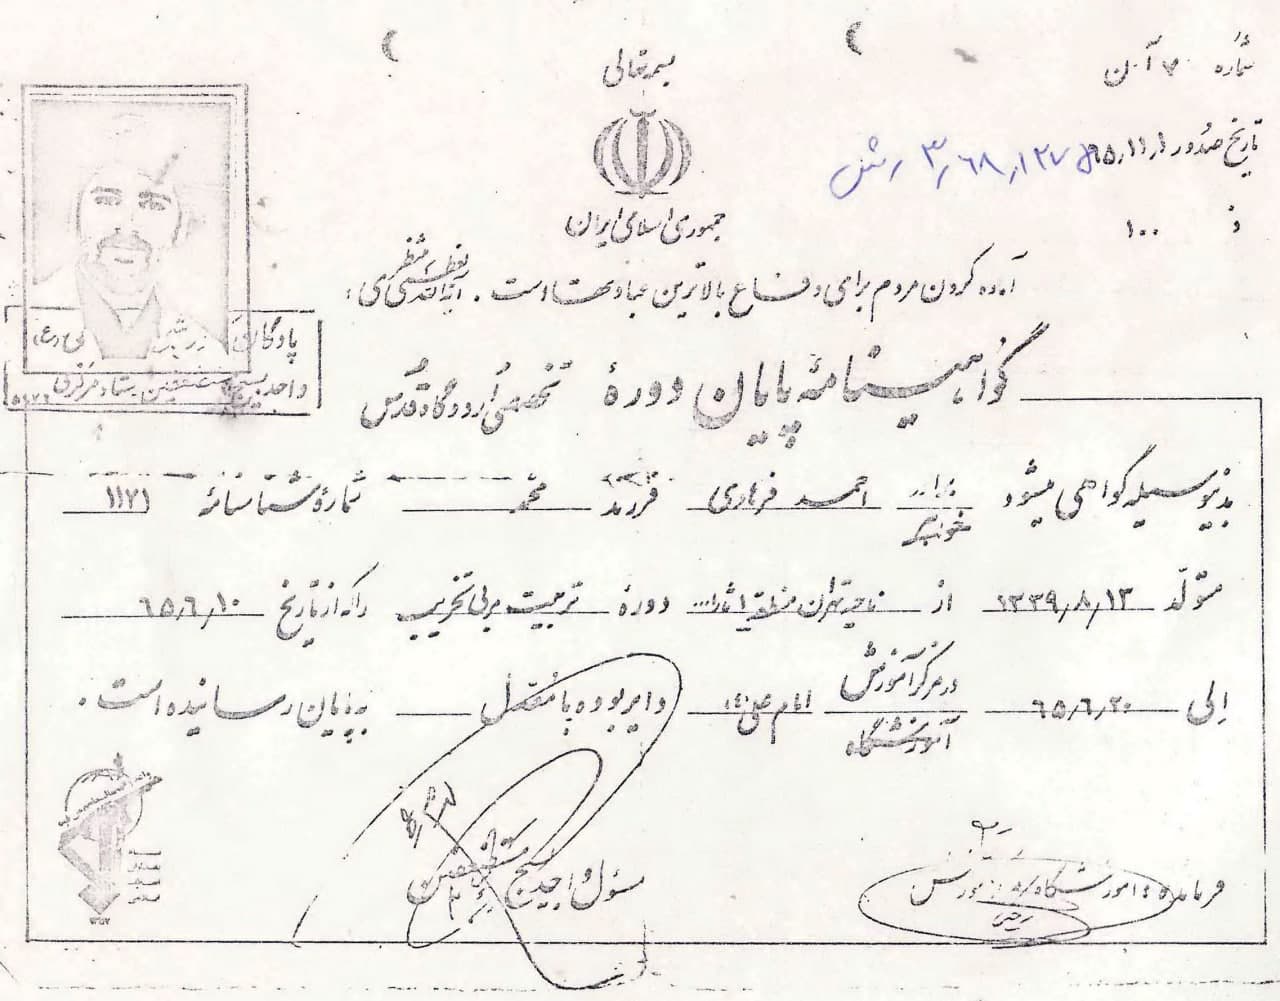 بسمه تعالی
شماره
تاریخ صدور ۶۵٫۱۱٫۱
۳٫۶۸٫۱۲۷
۱۰۰
جمهوری اسلامی ایران
آماده کردن مردم برای دفاع بالاترین عبادتها است . آیةالله العظمی منتظری
پادگان
واحد بسیج مستضعفین ستاد مرکزی
گواهینامهٔ پایان دورهٔ تخصصی اردوگاه قدس
بدینوسیله گواهی میشود برادر خواهر احمد فرزند محمد شمارهٔ شناسنامهٔ ۱۱۲۱
متولد ۱۳۳۹٫۸٫۱۳ از ناحیه تهران منطقه دورهٔ تربیت مربی تخریب را که از تاریخ ۶۵٫۶٫۱۰
الی ۶۵٫۶٫۲۰ در مرکز آموزش آموزشگاه امام علی (ع) دایر بوده با به پایان رسانیده است .
مسئول واحد بسیج مستضعفین
فرمانده آموزشگاه